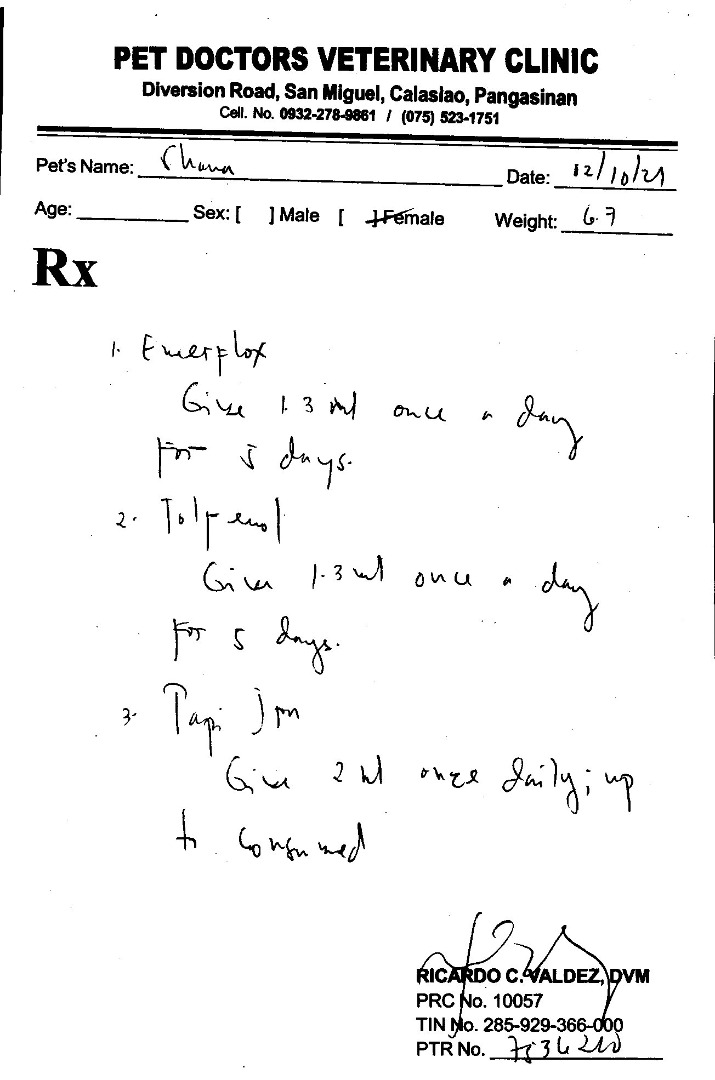 PET DOCTORS VETERINARY CLINIC
Diversion Road, San Miguel, Calasiao, Pangasinan
Cell. No. 0932-278-9861 / (075) 523-1751
Pet's Name: Date: 12/10/21
Age: Sex: [ ] Male [ ] Female Weight: 6.7
Rx
1. Emerflox
Give 1.3 ml once a day
For 5 days.
2. Tolfenol
Give 1.3 ml once a day
For 5 days.
3. Papi Iron
Give 2 ml once daily; up
to consumed
RICARDO C. VALDEZ, DVM
PRC No. 10057
TIN No. 285-929-366-000
PTR No.